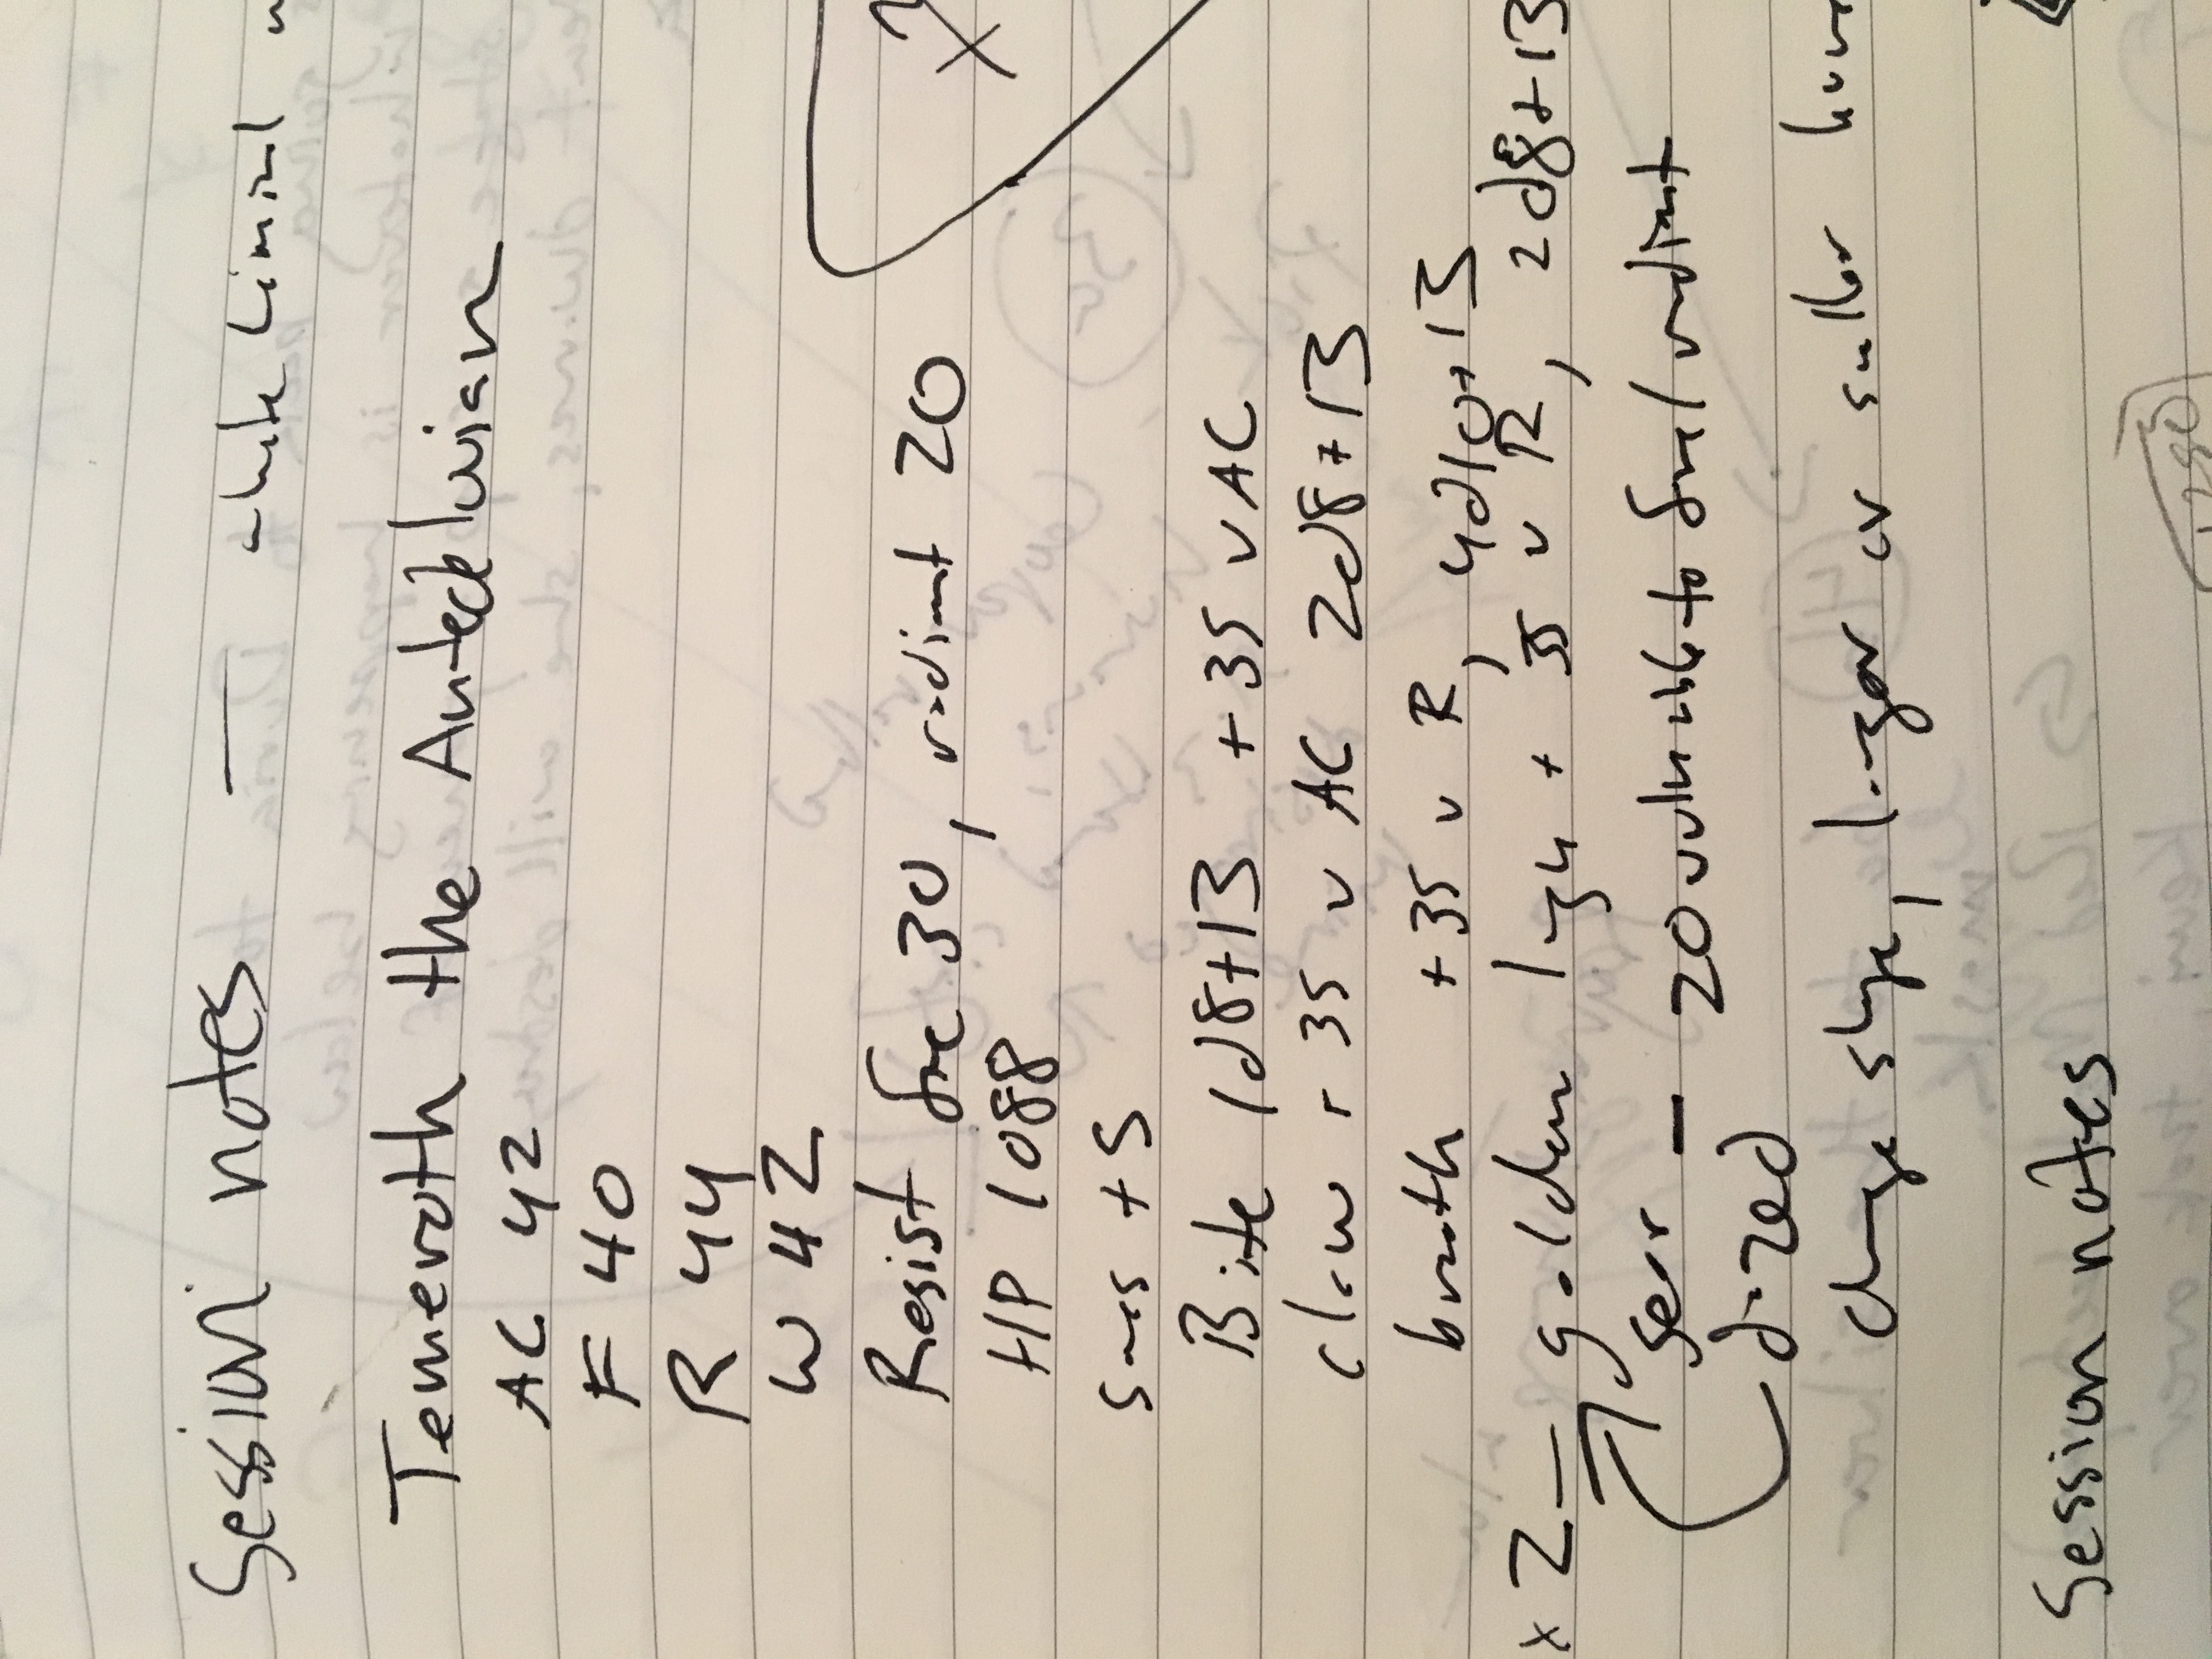 Session notes — white liminal
Temeroth the Antedeluvian
AC 42
F 40
R 44
W 42
Resist fire 30, radiant 20
HP 1088
saves +5
Bite 1d8+13 +35 v AC
claw + 35 v AC 2d8+13
breath +35 v R, 4d10+13
x2 — golden light + 35 v R, 2d8+13
sear — 20 vulnerable to fire/radiant
dazed
change shape, larger or smaller
x
Session notes